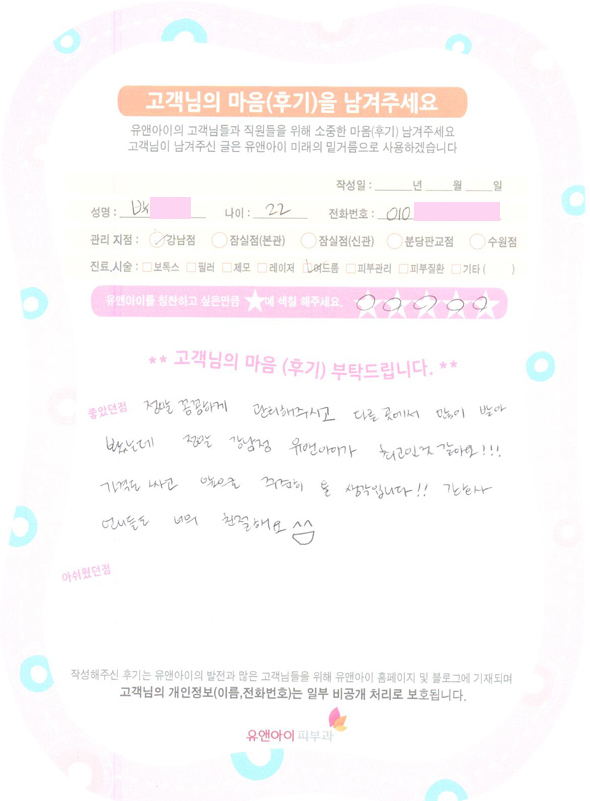 고객님의 마음(후기)을 남겨주세요
유앤아이의 고객님들과 직원들을 위해 소중한 마음(후기) 남겨주세요
고객님이 남겨주신 글은 유앤아이 미래의 밑거름으로 사용하겠습니다
작성일 : 년 월 일
성명 : 나이 : 22 전화번호 : 010
관리 지점 : 강남점 잠실점(본관) 잠실점(신관) 분당판교점 수원점
진료,시술 : 보톡스 필러 제모 레이저 여드름 피부관리 피부질환 기타 ( )
유앤아이를 칭찬하고 싶은만큼 ★에 색칠 해주세요.
** 고객님의 마음 (후기) 부탁드립니다. **
좋았던점 정말 꼼꼼하게 관리해주시고 다른 곳에서 많이 받아
봤는데 정말 강남점 유앤아이가 최고인것 같아요!!!
가격도 싸고 앞으로 꾸준히 올 생각입니다!! 간호사
언니들도 너무 친절해요 ^^
아쉬웠던점
작성해주신 후기는 유앤아이의 발전과 많은 고객님들을 위해 유앤아이 홈페이지 및 블로그에 기재되며
고객님의 개인정보(이름,전화번호)는 일부 비공개 처리로 보호됩니다.
유앤아이 피부과